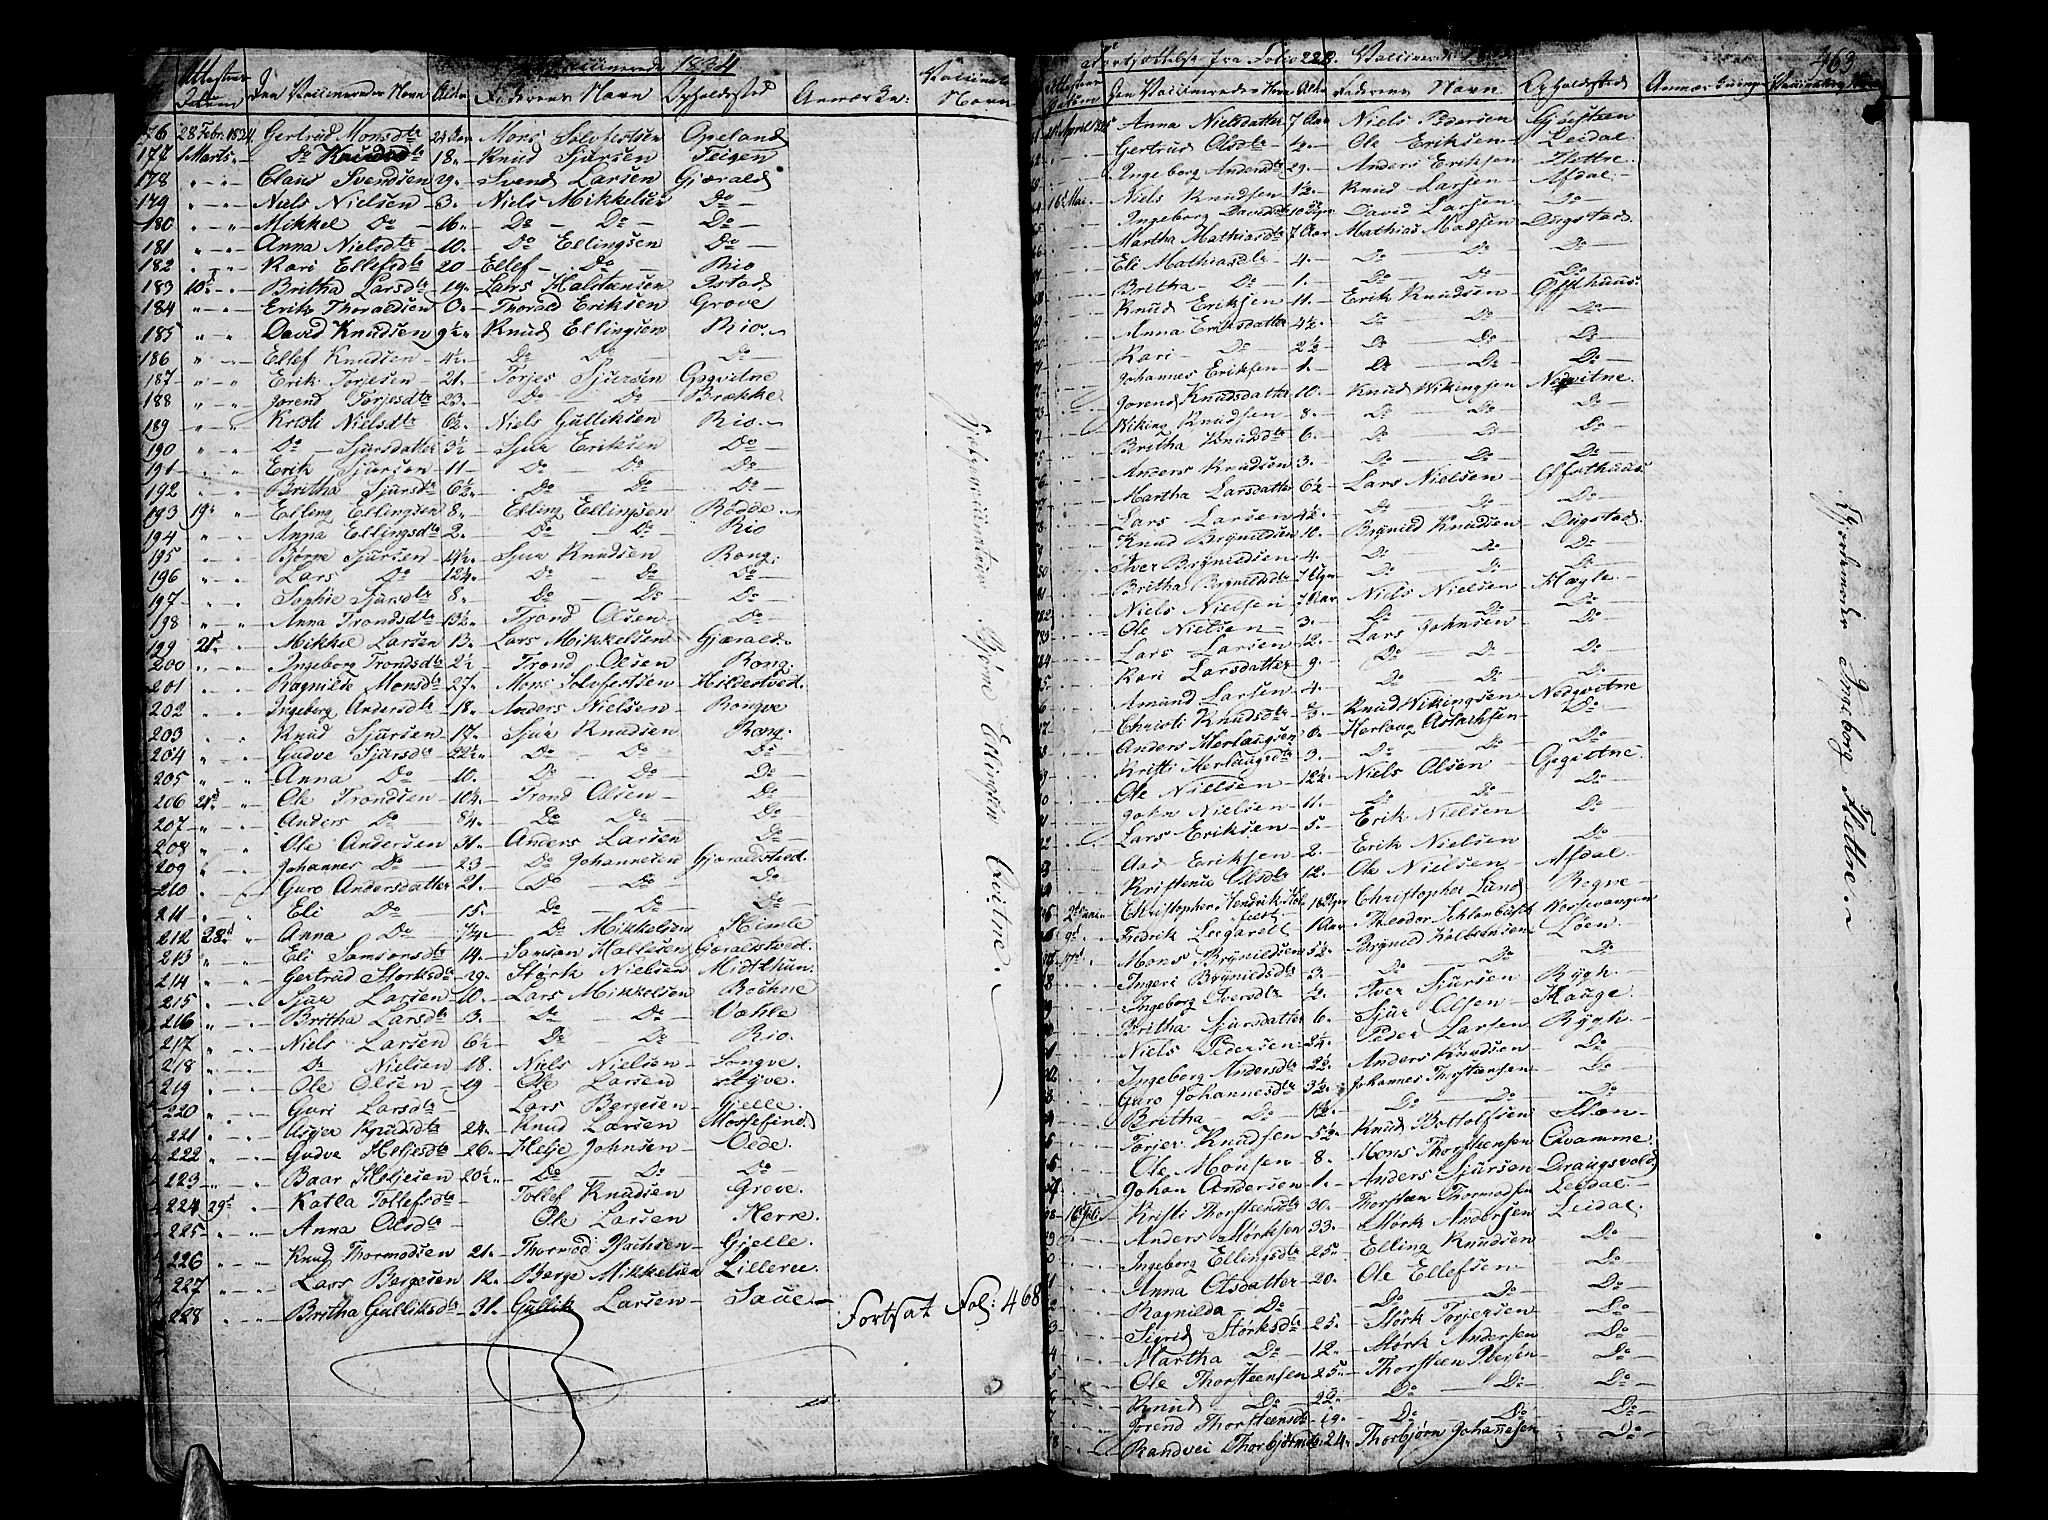 Vaccinerede 1834
Attestens Datum Den Vaccineredes Navn Alder Faderens Navn Opholdssted Anmærkn: Navn
176 28 Febr. 1824 Gertrud Monsdtr 21 Aar Mons Solofestsen Opeland
177 1 Marts " Do Knudsdtr 18 " Knud Sjursen Teigen
178 " " Claus Svendsen 29 " Svend Larsen Gjærald
179 " " Niels Nielsen 3 " Niels Mikkelsen Do
180 " " Mikkel Do 16 " Do Do Do
181 " " Anna Nielsdtr 10 " Do Ellingsen Do
182 " " Kari Ellefsdtr 20 Ellef Do Rio
183 10d " Britha Larsdtr 19 " Lars Halstensen Istad
184 " " Erik Thoraldsen 0 " Thorald Eriksen Grove
185 " " David Knudsen 9½ " Knud Ellingsen Rio
186 " " Ellef Knudsen 4½ Do Do Do
187 " " Erik Torjesen 21 " Torjes Sjursen Gjeqvitne
188 " " Jorend Torjesdtr 23 " Do Do Brække
189 " " Kristi Nielsdtr 6½ Niels Gulliksen Rio
190 " " Do Sjursdatter 3½ Sjur Eriksen Do
191 " " Erik Sjursen 11 Do Do Do
192 " " Britha Sjursdtr 6½ Do Do Do
193 19d " Elling Ellingsen 8 " Elling Ellingsen Rødde
194 " " Anna Ellingsdtr 2 " Do Do Rio
195 " " Bjørne Sjursen 14½ Sjur Knudsen Rong
196 " " Lars Do 12½ Do Do Do
197 " " Sophie Sjursdtr 8 " Do Do Do
198 " " Anna Trondsdtr 13½ Trond Olsen Do
199 21d " Mikkel Larsen 13 " Lars Mikkelsen Gjærald
200 " " Ingeborg Trondsdtr 2½ Trond Olsen Rong
201 " " Ragnilde Monsdtr 27 " Mons Solofestsen Hildestved
202 " " Ingeborg Andersdtr 18 " Anders Nielsen Rongve
203 " " Knud Sjursen 17 " Sjur Knudsen Rong
204 " " Gudve Sjursdtr 22½ Do Do Do
205 " " Anna Do 10 " Do Do Do
206 21d " Ole Trondsen 10¼ Trond Olsen Do
207 " " Anders Do 8¼ Do Do Do
208 " " Ole Andersen 31 " Anders Larsen Do
209 " " Johannes Do 23 Do Johannesen Gjæraldstved
210 " " Guro Andersdatter 21 " Do Do Do
211 " " Eli Do 15 " Do Do Do
212 28d " Anna Do ¾ Do Mikkelsen Himle
213 " " Eli Samsonsdtr 14 " Samson Hallesen Gjæraldstved
214 " " Gertrud Størksdtr 29 " Størk Nielsen Midthun
215 " " Sjur Larsen 10 " Lars Mikkelsen Bøehne
216 " " Britha Larsdtr 3 " Do Do Væhle
217 " " Niels Larsen 6½ Do Do Rio
218 " " Do Nielsen 18 " Niels Nielsen Songve
219 " " Ole Olsen 19 Ole Larsen Styve
220 " " Guri Larsdtr Lars Bergesen Gjelle
221 " " Knudsdtr 24 " Knud Larsen Mossefind
222 " " Gudve Heljesdtr 26 " Helje Johnsen Oede
223 " " Baar Heljesen 20½ Do Do Do
224 29d " Katla Tollefsdtr Tollef Knudsen Grove
225 " " Anna Olsdtr Ole Larsen Herre
226 " " Knud Thormodsen 21 " Thormod Gjelle
227 " " Lars Bergesen 12 " Berge Mikkelsen Lilleree
228 " " Britha Gulliksdtr 31 " Gullik Larsen Saue
Fortsat Fol: 468
Bjørne Ellingsen Qvitne.
Fortsættelse fra Folio 222 Vaccinerede 463
Attestens Datum Den Vaccineredes Navn Alder Faderens Navn Opholdssted Anmærkninger
April Anna Nielsdatter 7 Aar Niels Pedersen Gjesteen
Gertrud Olsdtr 4 " Ole Eriksen Leidal
Ingeborg Andersdtr 29 " Anders Eriksen Flettre
16d Mai Niels Knudsen 1½ Knud Larsen Afdal
Ingeborg Davidsdtr David Larsen Do
Martha Mathiasdtr 7 Aar Mathias Madsen Dugstad
Eli Mathiasdtr 4 " Do Do Do
Britha Do 1 " Do Do Do
Knud Eriksen 11 " Erik Knudsen Giffthuus
Anna Eriksdatter 4½ Do Do Do
Kari Do 2½ Do Do Do
Johannes Eriksen 1 " Do Do Do
Jorend Knudsdatter 10 " Knud Wikingsen Nedqvitne
Wiking Knudsen 8 " Do Do Do
Britha Knudsdtr 6 " Do Do Do
Anders Knudsen 3 " Do Do Do
Martha Larsdatter 6½ Lars Nielsen
Lars Larsen 4½ Do Do Do
Knud Brynildsen 10 " Brynild Knudsen Dugstad
Iver Brynildsen 4 " Do Do Do
Britha Brynildsdtr Do Do Do
Niels Nielsen 7 Aar Niels Nielsen Hægle
Ole Nielsen 3 " Do Do Do
Lars Larsen 12 " Lars Johnsen Do
Kari Larsdatter 9 " Do Do Do
Amund Larsen 4 " Do Do Do
Christi Knudsdtr Knud Wikingsen Nedqvitne
Anders Herlaugsen 0 " Herlaug Do
Kristi Herlaugsdtr 3 " Do Do Do
Ole Nielsen 12½ Niels Olsen Gjeqvitne
John Nielsen 11 " Do Do Do
Lars Eriksen 5 " Erik Nielsen Do
Aad Eriksen 2 " Erik Nielsen Do
Kristense Olsdtr 12 " Ole Nielsen Afdal
2d Juni Christopher Hendrik Christopher Lund Rogne
9d Fredrik Leegarell 1 Aar Theodor Schlanbusch Vossevangen
17d Mons Brynildsen 5½ Brynild Kolbeinsen Løen
Ingeri Brynildsdtr 3 " Do Do Do
Ingeborg Iversdtr ½ Iver Sjursen Rygh
Britha Sjursdatter 6 " Sjur Olsen Hauge
Niels Pedersen 2¼ Peder Larsen Rygh
Ingeborg Andersdtr 2½ Anders Knudsen Do
Guro Johannesdtr 3½ Johannes Thorsteensen Do
Britha Do 1½ Do Do Do
Torjer Knudsen 5½ Knud Bottolfsen Fløen
Ole Monsen 8 " Mons Thorsteensen Qvamme
Johan Andersen 1 " Anders Sjursen Draugsvold
16d Juli Kristi Thorsteensdtr 30 " Thorsteen Thormodsen Leidal
Anders Størksen 33 " Størk Andersen Leidal
Ingeborg Ellingsdtr 25 " Elling Knudsen Do
Anna Olsdatter 20 " Ole Ellefsen Do
Ragnilda Do Do Do Do
Sigrid Størksdtr 25 " Størk Torjersen Do
Martha Do 12 " Størk Andersen Do
Ole Thorsteensen 25 " Thorsteen Iversen Do
Knud Do 22 " Do Do Do
Jorend Thorsteensdtr 19 " Do Do Do
Randvei Thorbjørnsdtr 24 " Thorbjørn Johannesen Do
Gjordemoder Ingeborg Flettre